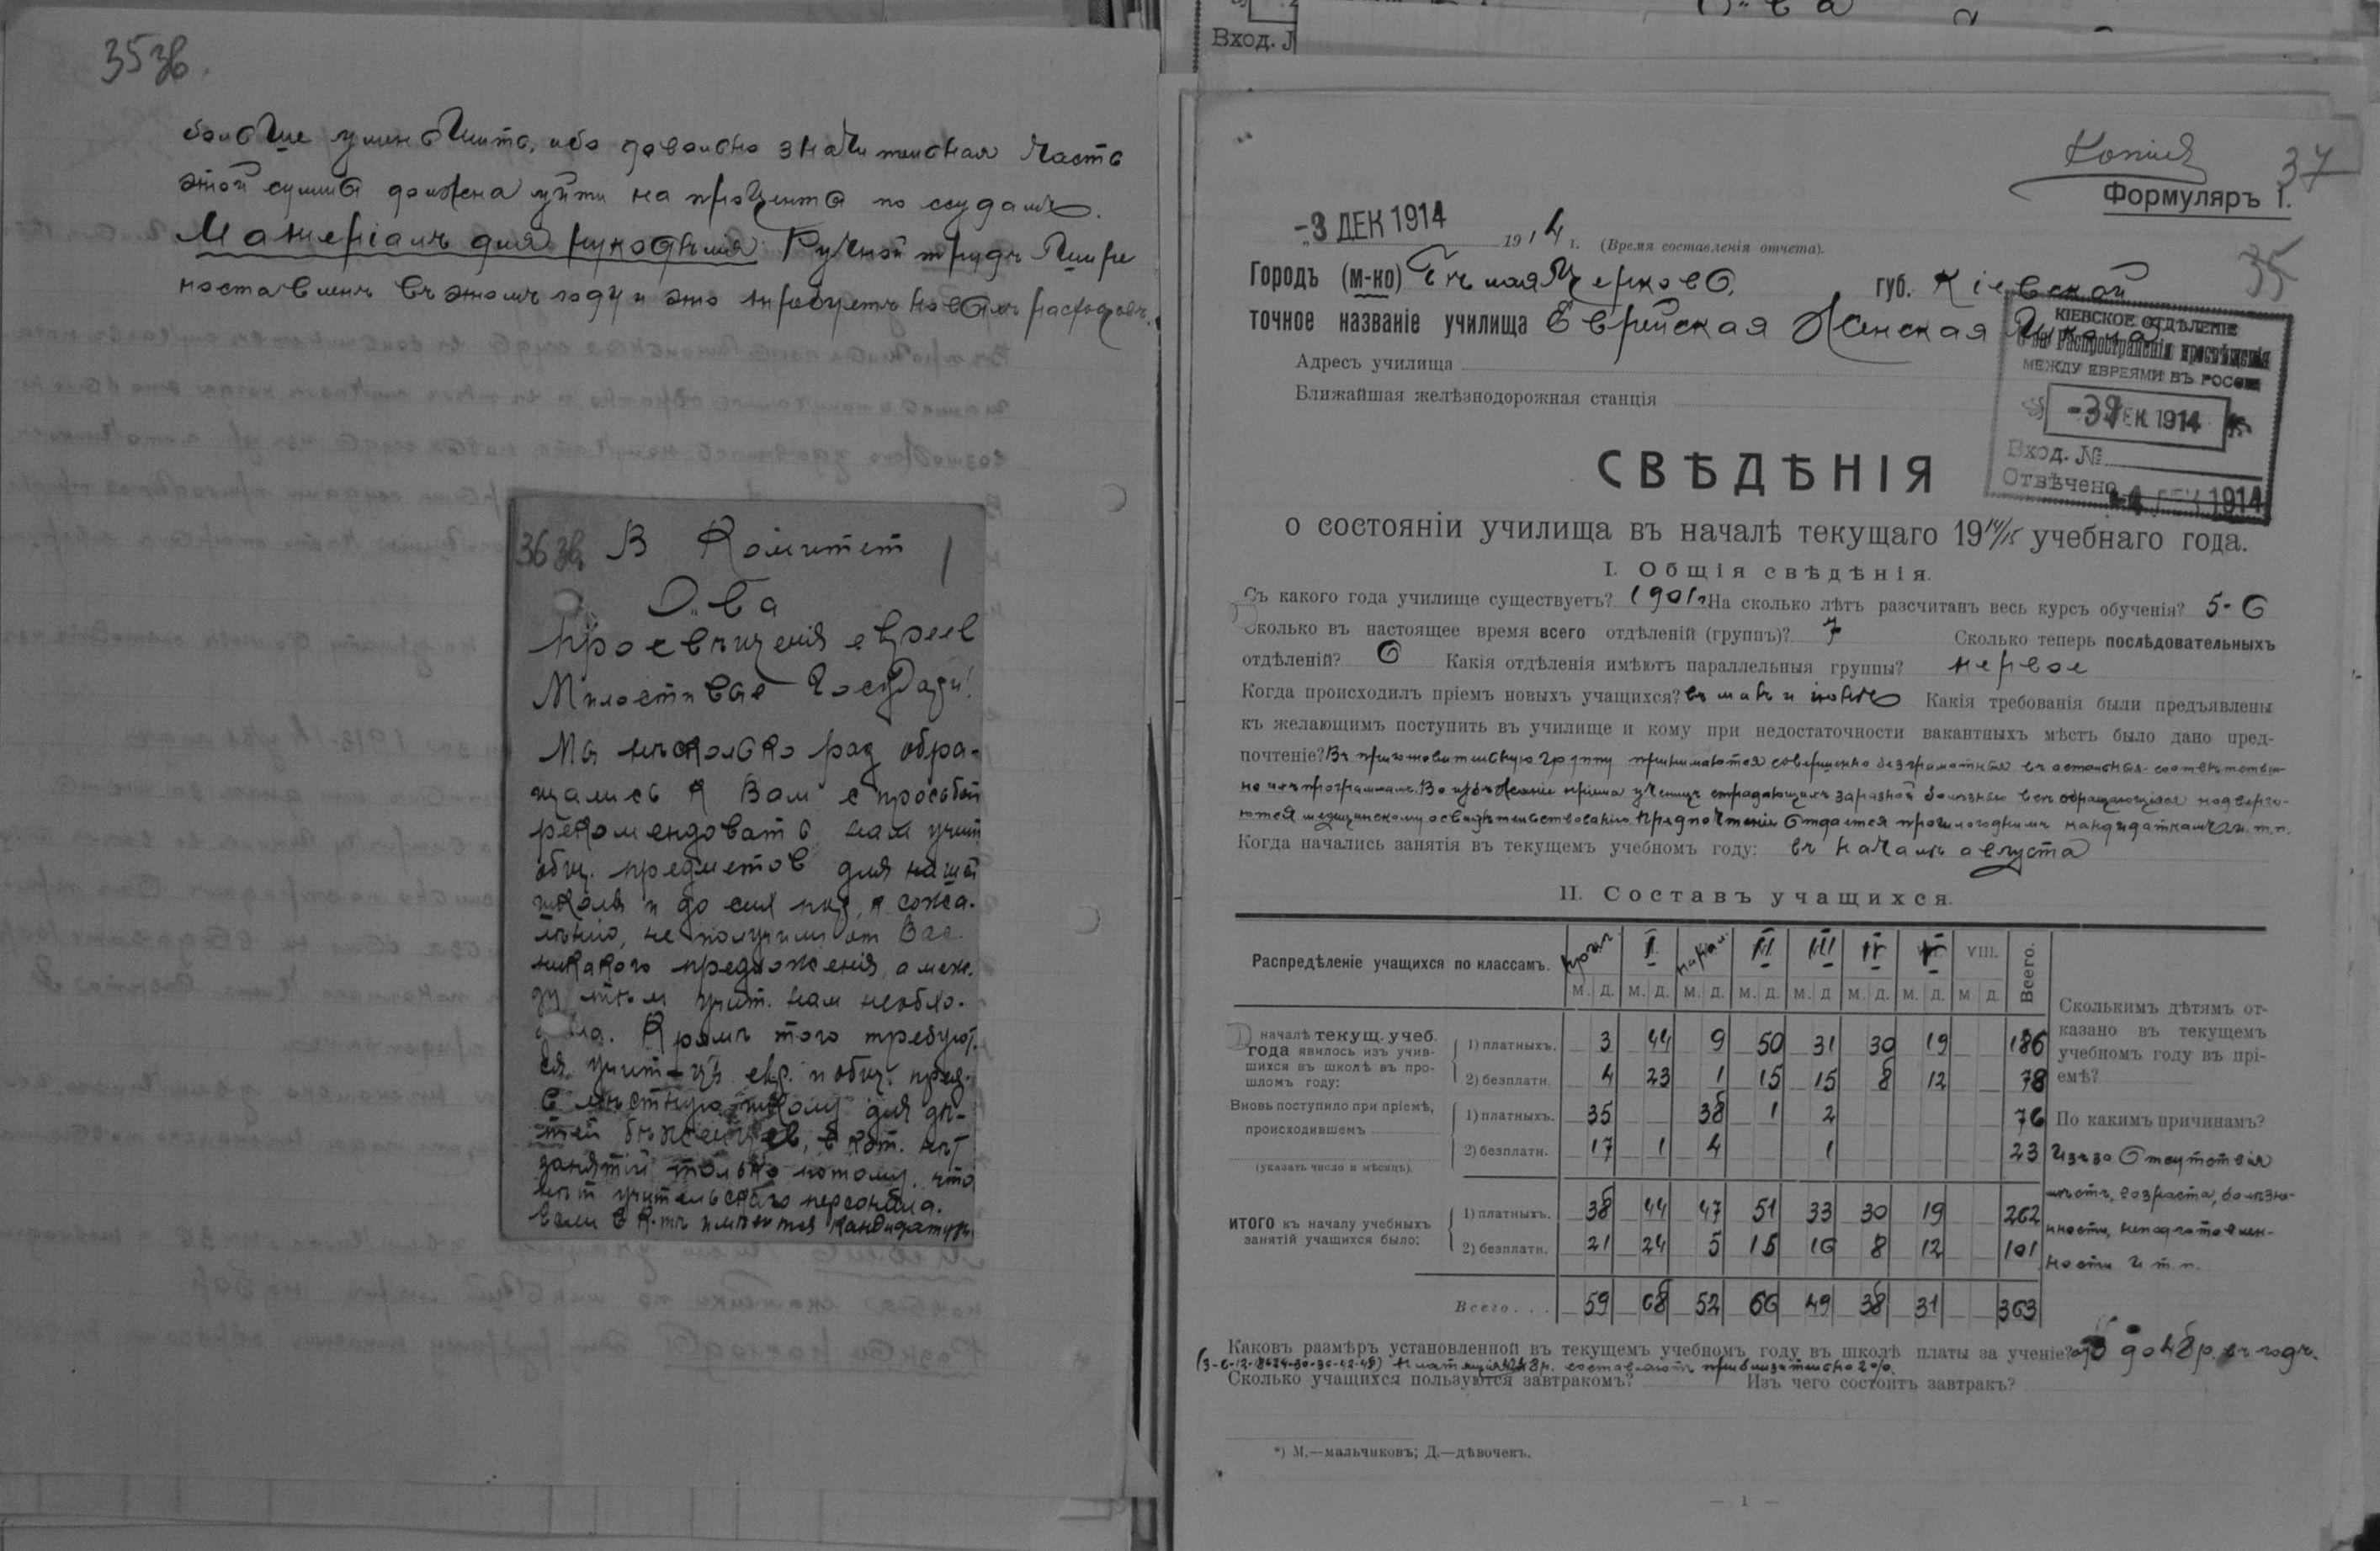 35 зв.
больше уменьшить, ибо довольно значительная часть
этой суммы должна уйти на проценты по ссудамъ.
Матеріалъ для рукодѣлія. Ручной трудъ шире
поставленъ въ этомъ году и это требуетъ новыхъ расходовъ.
36 зв. В Комитет
О-ва
просвѣщенія евреев
Милостивые Государи!
Мы нѣсколько раз обра-
щались к Вам с просьбой
рекомендовать нам учит.
общ. предметов для нашей
школы и до сих пор, к сожа-
лѣнію, не получили от Вас
никакого предложенія, а меж-
ду тѣм учит. нам необхо-
Кромѣ того требуют-
ся учит-цы евр. и общ. пред.
в мѣстную школу для дѣ-
тей бѣженцев, в кот. нѣт
занятій только потому, что
нѣт учительскаго персонала.
Если в К-тѣ имѣются кандидатуры
Вход.
Копія
37
Формуляръ I.
-3 ДЕК 1914
1914 г. (Время составленія отчета).
35
Городъ (м-ко) Бѣлая Церковь, губ. Кіевской
точное названіе училища Еврейская Женская Школа
КІЕВСКОЕ ОТДѢЛЕНІЕ
О-ва Распространенія просвѣщенія
МЕЖДУ ЕВРЕЯМИ ВЪ РОССІИ
-3 ДЕК 1914
Вход. №
Отвѣчено -4 ДЕК 1914
Адресъ училища
Ближайшая желѣзнодорожная станція
СВѢДѢНІЯ
о состояніи училища въ началѣ текущаго 1914/15 учебнаго года.
I. Общія свѣдѣнія.
Съ какого года училище существуетъ? 1901 г. На сколько лѣтъ разсчитанъ весь курсъ обученія? 5-6
Сколько въ настоящее время всего отдѣленій (группъ)? 7 Сколько теперь послѣдовательныхъ
отдѣленій? 6 Какія отдѣленія имѣютъ параллельныя группы? первое
Когда происходилъ пріемъ новыхъ учащихся? въ маѣ и іюнѣ Какія требованія были предъявлены
къ желающимъ поступить въ училище и кому при недостаточности вакантныхъ мѣстъ было дано пред-
почтеніе? Въ приготовительную группу принимаются совершенно безграмотныя въ остальныя соотвѣтствен-
но ихъ программамъ. Во избѣжаніе пріема ученицъ страдающихъ заразной болѣзнью всѣ обращающіяся подверга-
ются медицинскому освидѣтельствованію. Предпочтеніе отдается прошлогоднимъ кандидаткамъ и т.п.
Когда начались занятія въ текущемъ учебномъ году: въ началѣ августа
II. Составъ учащихся.
Распредѣленіе учащихся по классамъ. I. II III IV V VIII. Всего.
М. Д. М. Д. М. Д. М. Д. М. Д. М. Д. М. Д. М. Д.
началѣ текущ. учеб. года явилось изъ учив-шихся въ школѣ въ про-шломъ году:
1) платныхъ. 3 44 9 50 31 30 19 186
2) безплатн. 4 23 1 15 15 8 12 78
Вновь поступило при пріемѣ, происходившемъ
(указать число и мѣсяцъ).
1) платныхъ. 35 38 1 2 76
2) безплатн. 17 1 4 1 23
ИТОГО къ началу учебныхъ занятій учащихся было:
1) платныхъ. 38 44 47 51 33 30 19 262
2) безплатн. 21 24 5 15 16 8 12 101
Всего. . . . 59 68 52 66 49 38 31 363
Сколькимъ дѣтямъ от-
казано въ текущемъ
учебномъ году въ прі-
емѣ?
По какимъ причинамъ?
Изъ за отсутствія
мѣстъ, возраста, болѣзне-
нности, неподготовлен-
ности и т.п.
Каковъ размѣръ установленной въ текущемъ учебномъ году въ школѣ платы за ученіе? отъ 3 до 48 р. въ годъ.
(3-6-12-18-24-30-36-42-48) Платящія 48 р. составляютъ приблизительно 2%.
Сколько учащихся пользуются завтракомъ? Изъ чего состоитъ завтракъ?
*) М.—мальчиковъ; Д.—дѣвочекъ.
— 1 —